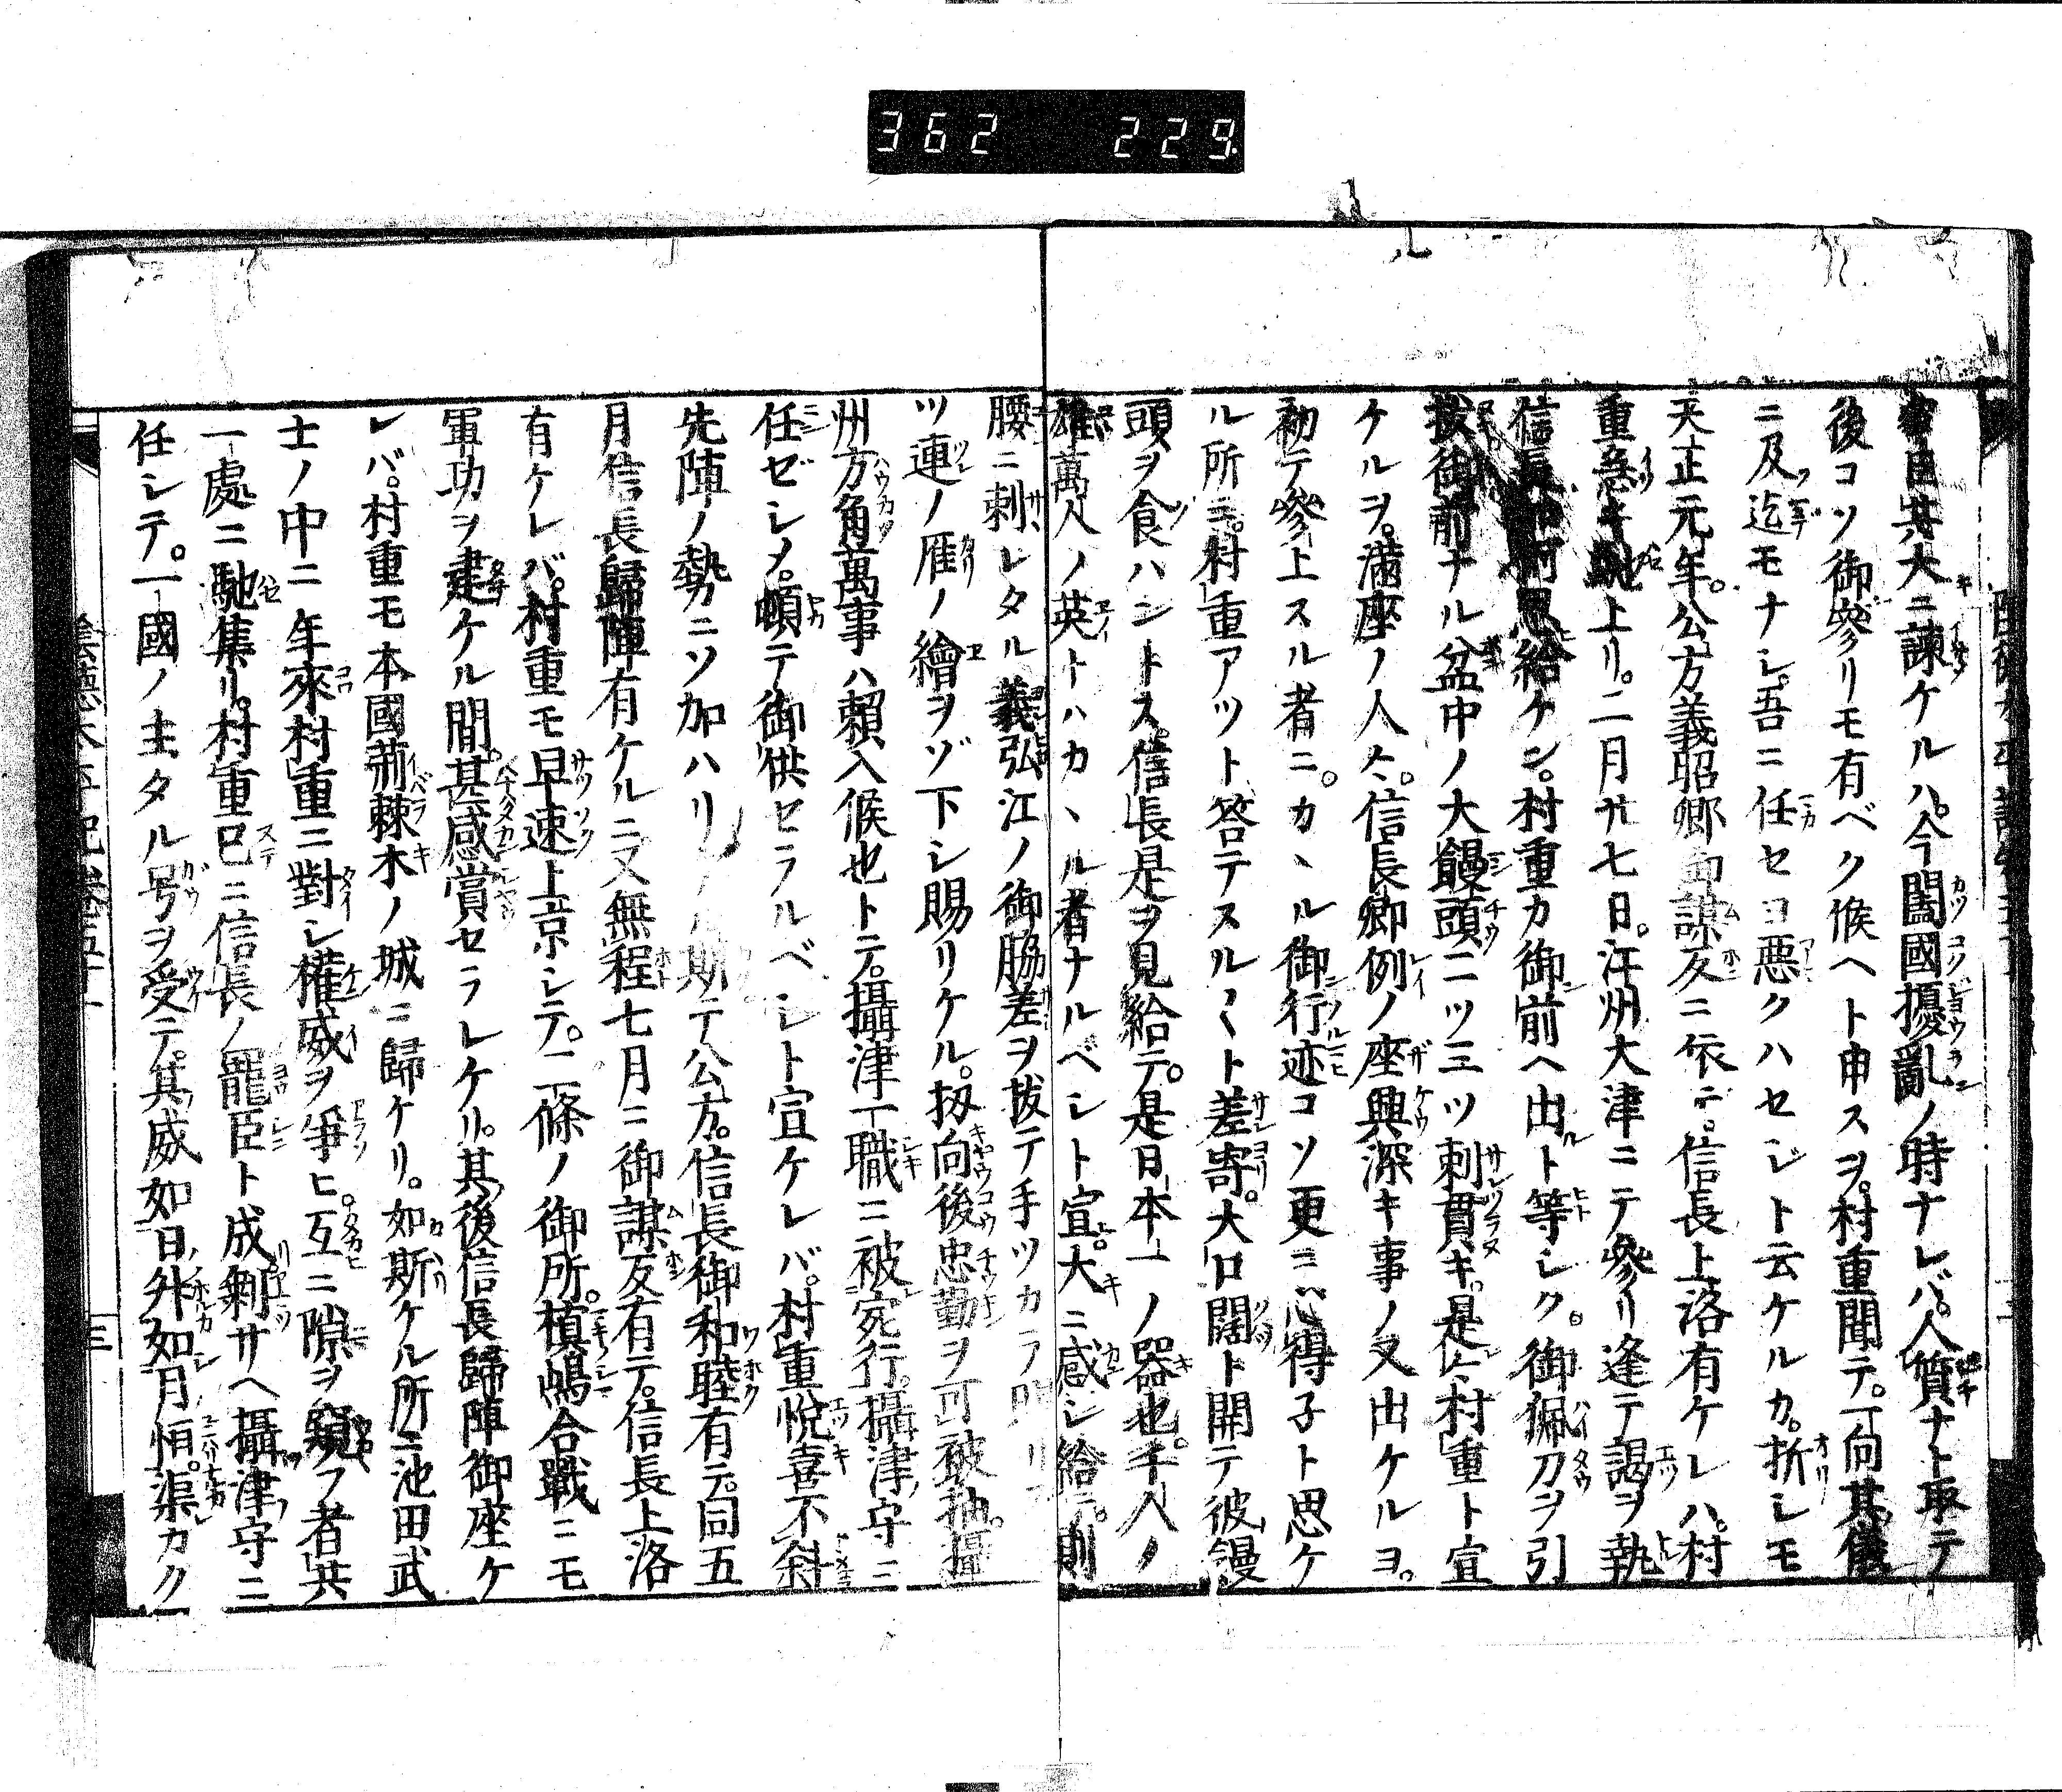 362 229
其大ニ諫ケルハ。今闔國擾亂ノ時ナレバ。人質ナト取テ
後コソ御參リモ有ベク候ヘト申スヲ。村重聞テ。一向其儀
ニ及迄モナシ。吾ニ任セヨ悪クハセジト云ケルカ。折シモ
天正元年。公方義昭卿御謀反ニ依テ。信長上洛有ケレハ。村
重急キ馳上リ。二月廿七日。江州大津ニテ參リ逢テ謁ヲ執
信長如何思給ケン。村重カ御前ヘ出ルト等シク。御佩刀ヲ引
拔御前ナル盆中ノ大饅頭二ツ三ツ刺貫キ。是々村重ト宣
ケルヲ。滿座ノ人々。信長卿例ノ座興深キ事ノ又出ケルヨ。
初テ參上スル者ニ。カヽル御行迹コソ更ニ心得子ト思ケ
ル所ニ。村重アツト答テスル〱ト差寄。大口闊ト開テ彼饅
頭ヲ食ハントス。信長是ヲ見給テ。是日本一ノ器也。千人ノ
雄萬人ノ英トハカヽル者ナルベシト宣。大ニ感シ給テ。則
腰ニ刺レタル義弘江ノ御脇差ヲ拔テ手ツカラ賜リ
ツ連ノ雁ノ繪ヲゾ下シ賜リケル。扨向後忠勤ヲ可被抽。攝
州方角萬事ハ賴入候也トテ。攝津一職ニ被宛行。攝津守ニ
任ゼシメ。頓テ御供セラルベシト宣ケレバ。村重悅喜不斜
先陣ノ勢ニソ加ハリ斯テ公方。信長御和睦有テ。同五
月信長歸陣有ケルニ又無程七月ニ御謀反有テ。信長上洛
有ケレバ。村重モ早速上京シテ。二條ノ御所。槙嶋合戰ニモ
軍功ヲ建ケル間。甚感賞セラレケリ。其後信長歸陣御座ケ
レバ。村重モ本國荊棘木ノ城ニ歸ケリ。如斯ケル所ニ池田武
士ノ中ニ年來村重ニ對シ權威ヲ爭ヒ。互ニ隙ヲ窺フ者共
一處ニ馳集リ。村重已ニ信長ノ寵臣ト成剩サヘ攝津守ニ
任シテ。一國ノ主タル号ヲ受テ。其威如日外如月恒。渠カク
陰德太平記卷五十
三